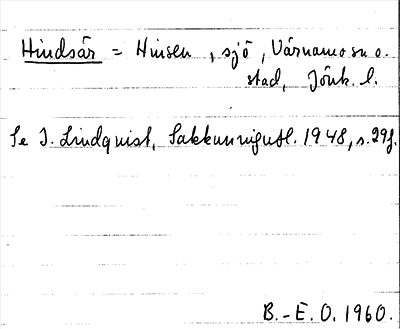 Hindsär = Hinsen, sjö, Värnamo sn o.
stad, Jönk. l.
Se I. Lindquist, Sakkunnigutl. 1948, s. 29f.
B.-E. O. 1960.